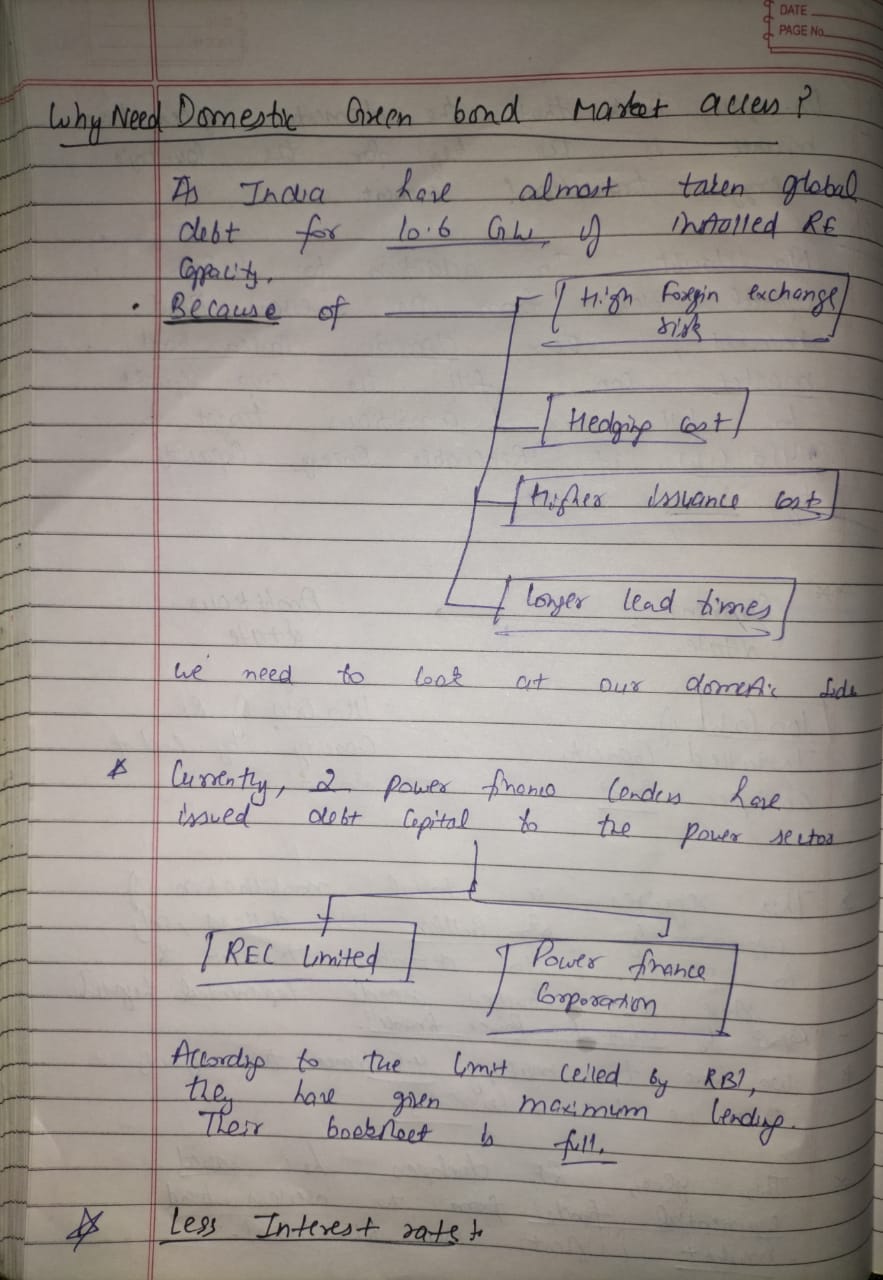 DATE
PAGE No.
Why Need Domestic Green bond Market access?
As India have almost taken global
debt for 10.6 GW, of installed RE
Capacity.
Because of
High Foregin exchange
risk
Hedging cost
Higher issuance cost
longer lead times
we need to look at our domestic side
Currently, 2 power finance lenders have
issued debt capital to the power sector
REC Limited
Power finance
Corporation
According to the limit ceiled by RBI,
they have given maximum lending.
Their is full.
Less Interest rate